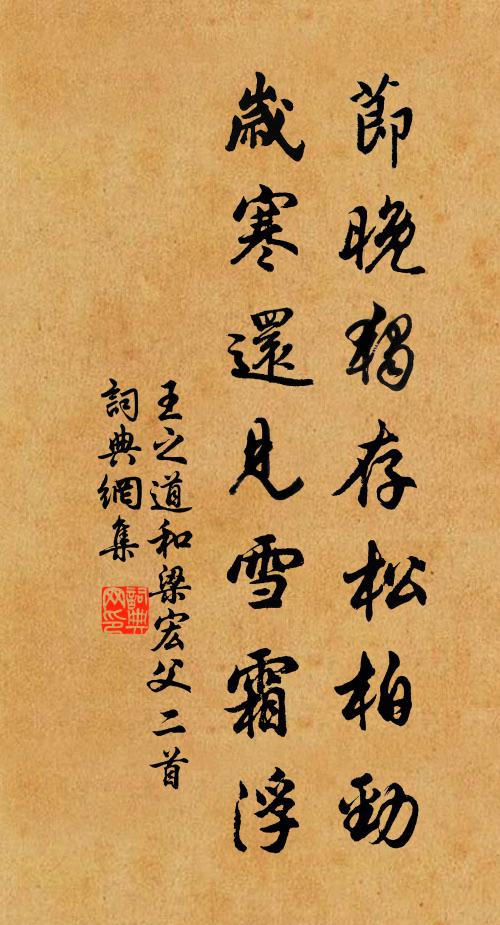 節晚獨存松柏勁
歲寒還見雪霜浮
王之道和梁宏父二首
詞典網集
詞典网印